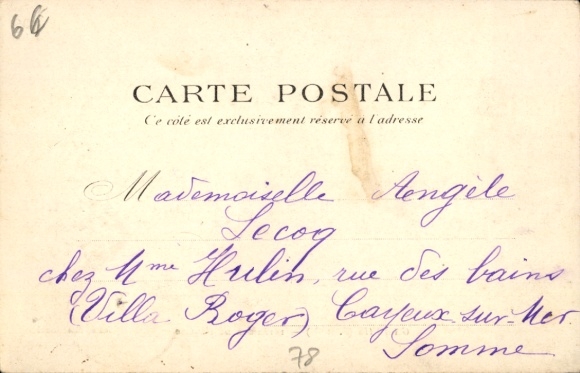 64
CARTE POSTALE
Ce côté est exclusivement réservé a l'adresse
Mademoiselle Angèle
Lecoq
chez Mme Hulin, rue des bains
(Villa Roger) Cayeux-sur-Mer
Somme
78